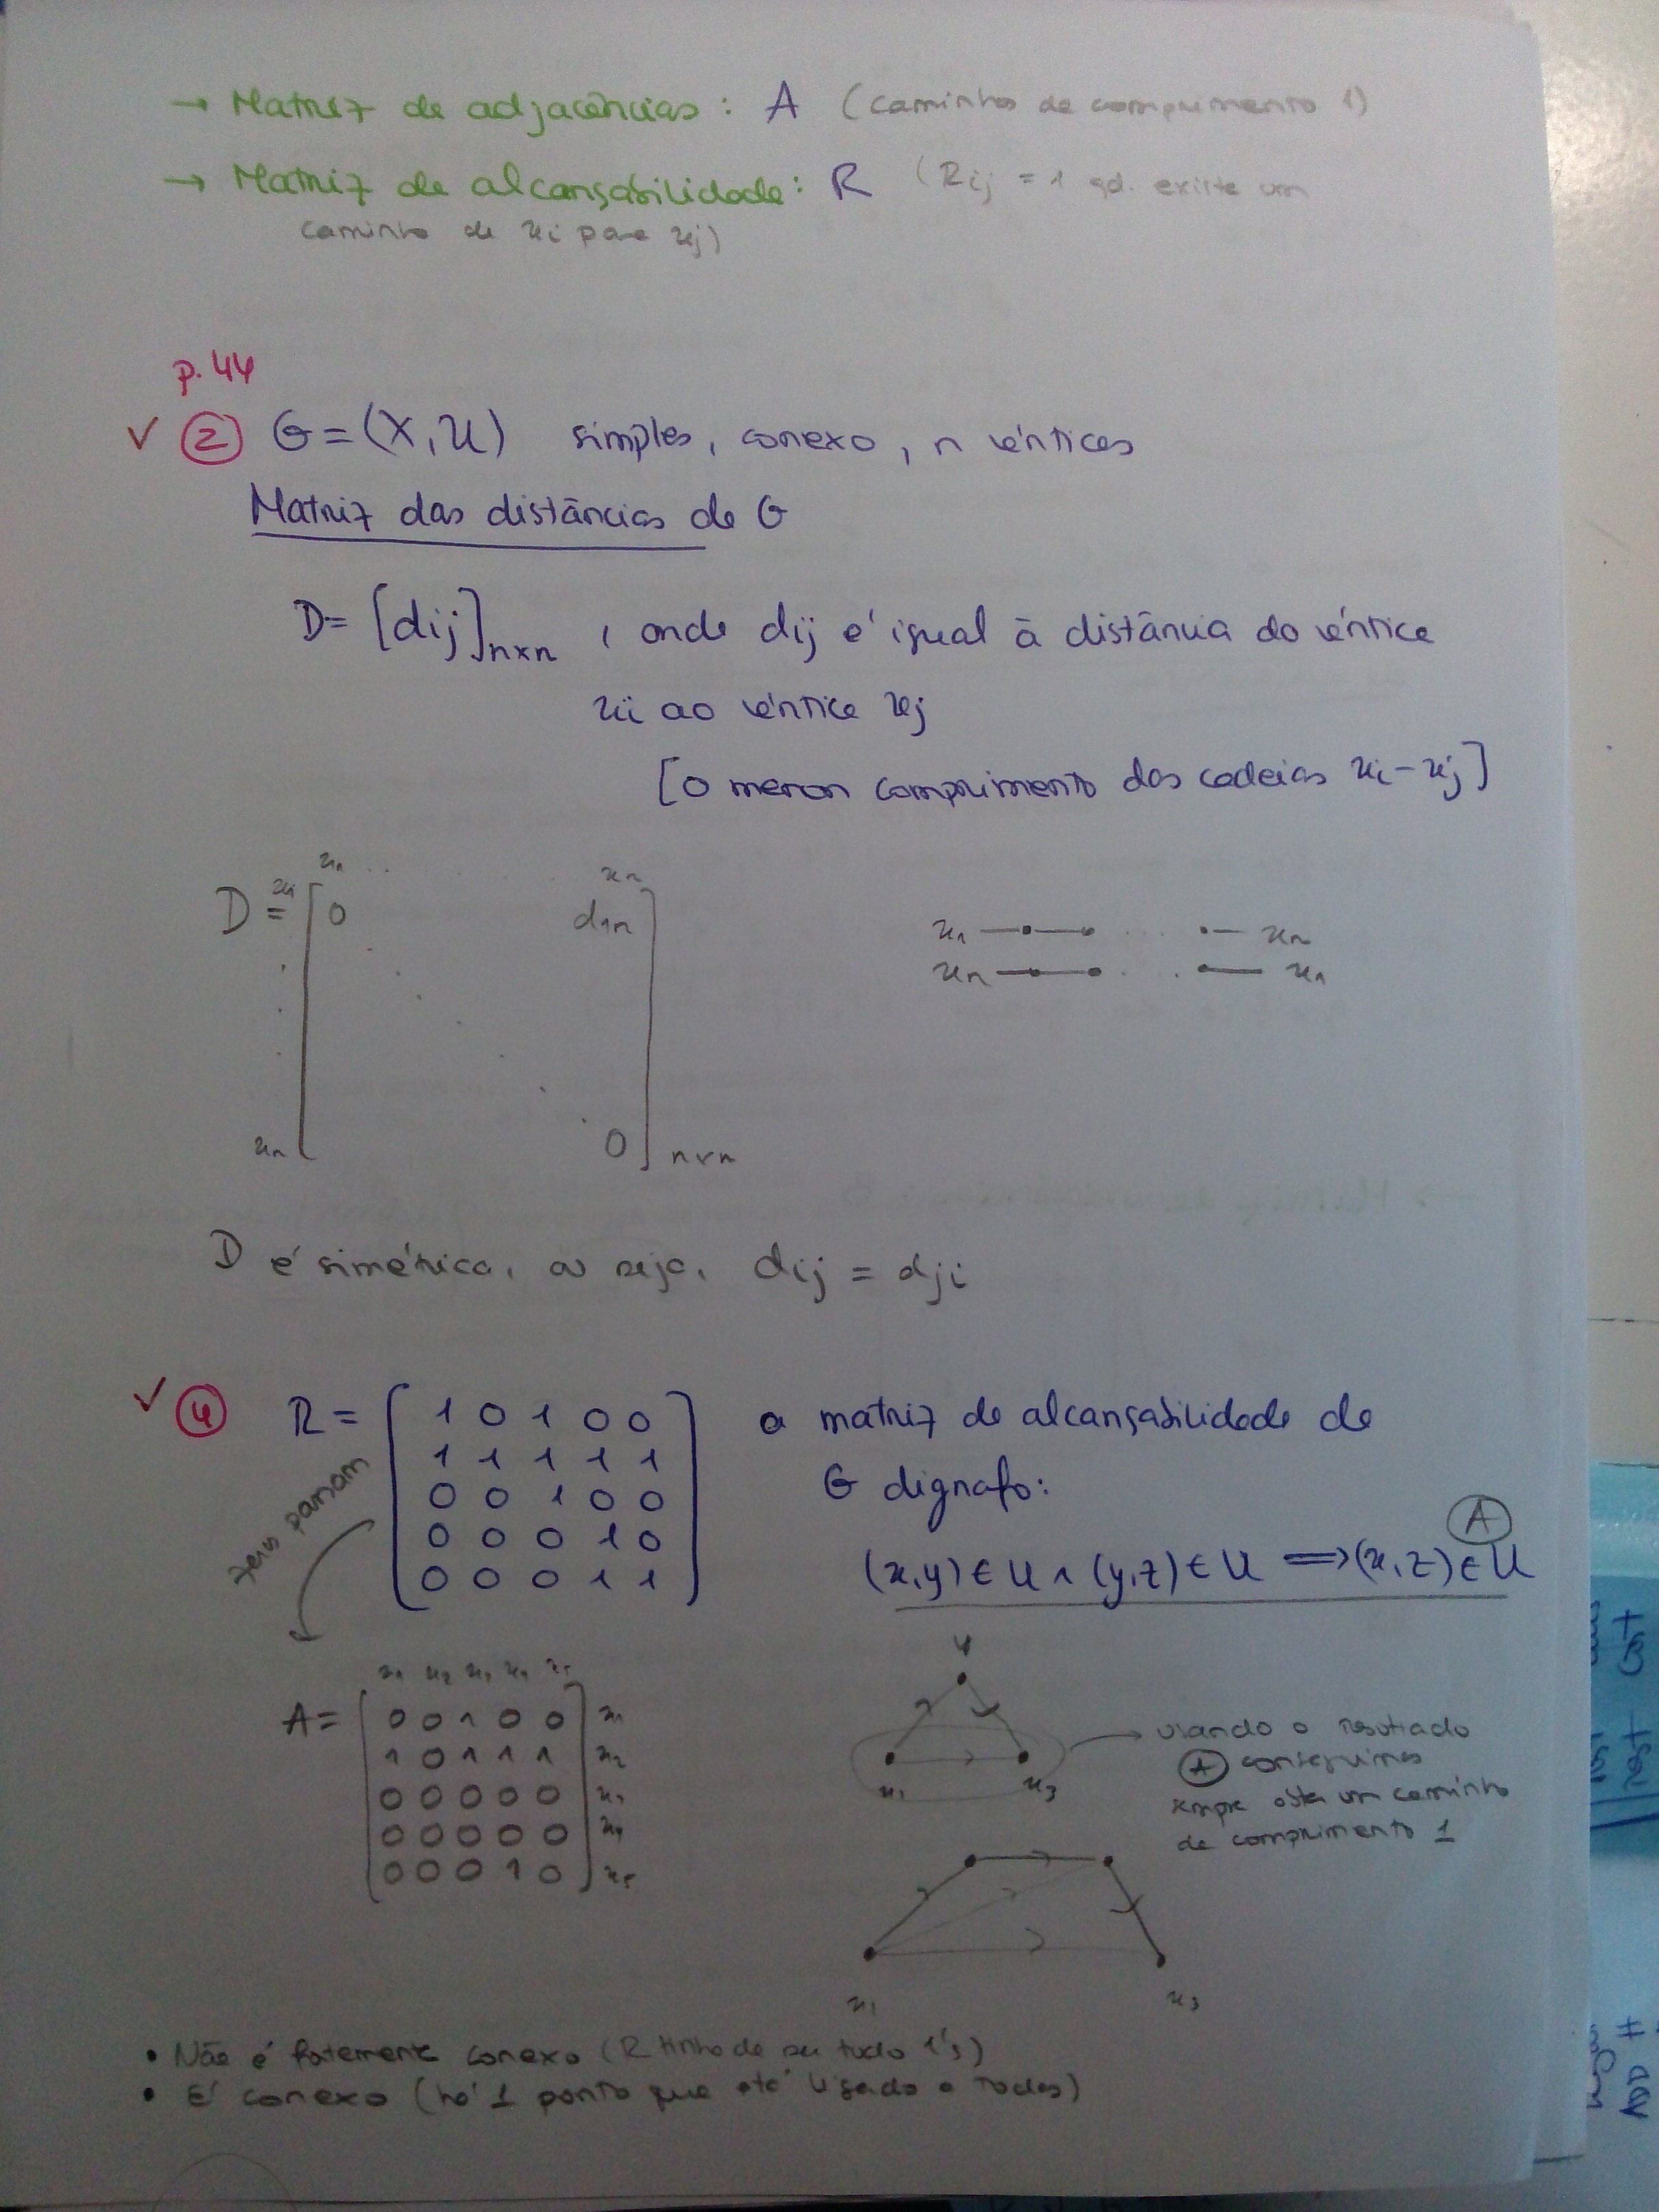 → Matriz de adjacências: A (caminhos de comprimento 1)
→ Matriz de alcançabilidade: R (Rij = 1 qd. existe um
caminho de xi para xj)
p. 44
✓ ② G = (X, U) simples, conexo, n vértices
Matriz das distâncias de G
D = [dij]n×n , onde dij é igual à distância do vértice
xi ao vértice xj
[o menor comprimento das cadeias xi - xj]
x1 . . . xn
D = x1 [ 0 d1n
xn 0 ] n×n
x1 —•—• . . . •— xn
xn —•—• . . . •— x1
D é simétrica, ou seja, dij = dji
✓ ④ R = [ 1 0 1 0 0 ] a matriz de alcançabilidade de
1 1 1 1 1
G digrafo:
0 0 1 0 0
0 0 0 1 0
0 0 0 1 1
(x,y) ∈ U ∧ (y,z) ∈ U ⟹ (x,z) ∈ U
A
x1 x2 x3 x4 x5
A = [ 0 0 1 0 0 ] x1
1 0 1 1 1 x2
0 0 0 0 0 x3
0 0 0 0 0 x4
0 0 0 1 0 x5
x1 x3
usando o resultado
A conseguimos
sempre obter um caminho
de comprimento 1
x1 x3
• Não é fortemente conexo (R tinha de ser tudo 1's)
• É conexo (há 1 ponto que está ligado a todos)